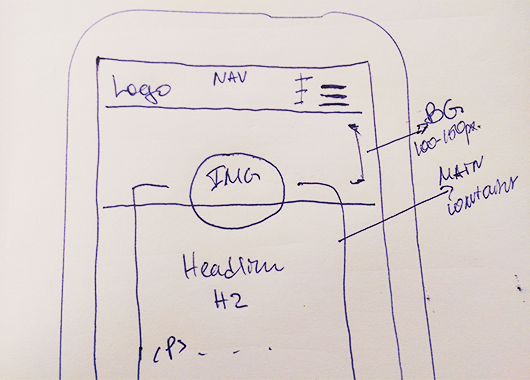 Logo
NAV
BG
100-150px.
IMG
MAIN
container
Headline
H2
<P> - - -